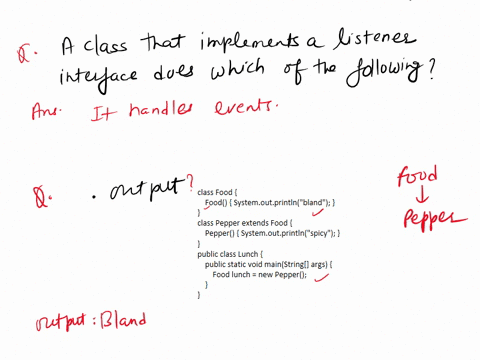 Q. A class that implements a listener
interface does which of the following?
Ans. It handles events.
Q. . output?
class Food {
Food() { System.out.println("bland"); }
}
class Pepper extends Food {
Pepper() { System.out.println("spicy"); }
}
public class Lunch {
public static void main(String[] args) {
Food lunch = new Pepper();
}
}
Food
Pepper
output : Bland